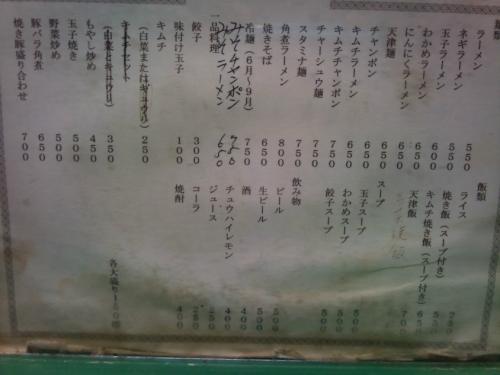 類
ラーメン 550
ネギラーメン 550
玉子ラーメン 600
わかめラーメン 600
にんにくラーメン 650
天津麺 650
チャンポン 650
キムチラーメン 650
キムチチャンポン 750
チャーシュウ麺 750
スタミナ麺 750
角煮ラーメン 800
焼きそば 650
冷麺(6月〜9月) 750
みそチャンポン
みそラーメン 650
一品料理
餃子 300
味付け玉子 100
キムチ
(白菜またはキュウリ) 250
キムチセット
(白菜とキュウリ) 350
もやし炒め 450
玉子焼き 500
野菜炒め 500
豚バラ角煮 650
焼き豚盛り合わせ 700
飯類
ライス
焼き飯(スープ付き)
キムチ焼き飯(スープ付き)
天津飯 700
スープ
玉子スープ 500
わかめスープ 500
餃子スープ 500
飲み物
ビール 500
生ビール 500
酒 400
チュウハイレモン 400
ジュース 250
コーラ 250
焼酎 400
各大盛り